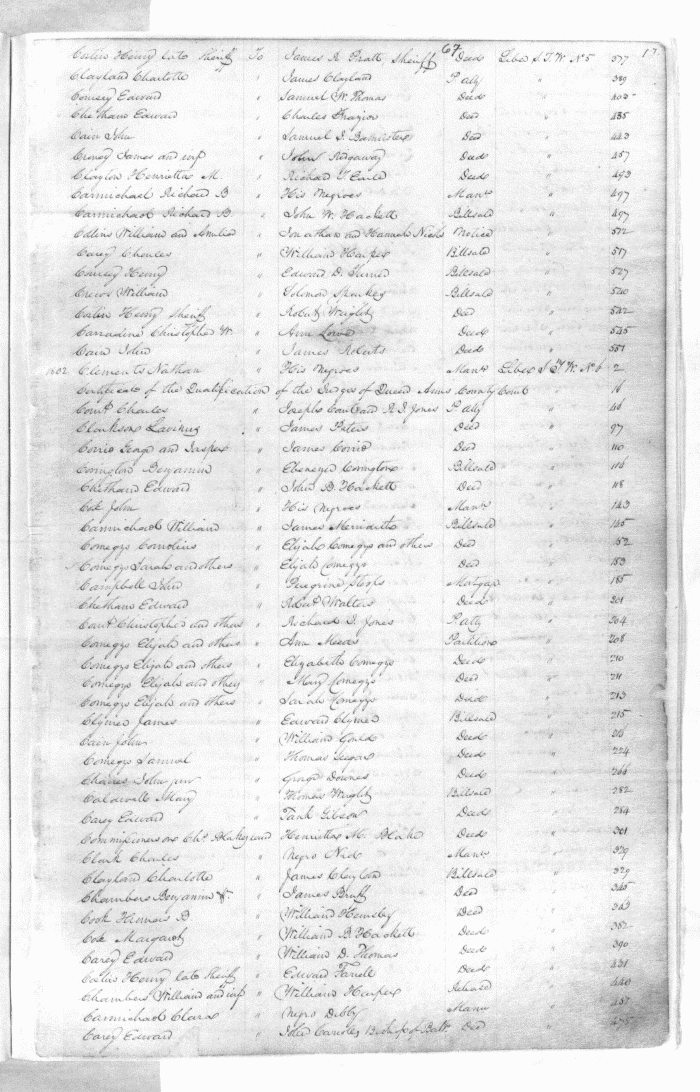 67 17
Henry late Sheriff To James R Pratt, Sheriff Deed Liber S T. W. No 5 577
Clayland Charlotte " James Clayland P. atty " 389
Edward " Samuel W. Thomas Deed " 403
Chetham Edward " Charles Frazier Deed " 435
Cain John " Samuel S. Deed " 443
James and wife " John Ridgaway Deed " 457
Clayton Henrietta M. " Richard T Earle Deed " 493
Carmichael Richard B " His Negroes Manu " 497
Carmichael Richard B. " John W. Hackett Billsale " 497
Collins William and " Jonathan and Hannah Notice " 512
Carey Charles " William Harper Billsale " 517
Henry " Edward D. Turner Billsale " 527
William " Solomon Sparkes Billsale " 520
Henry Sheriff " Robert Wright Deed " 542
Carradine Christopher W. " Ann Lowe Deed " 545
Cain John " James Roberts Deed " 551
1802 Clements Nathan " His Negroes Manu Liber S T. W. No 6 2
Certificate of the Qualification of the Judges of Queen Anns County Court " 16
Charles " Joseph and R. I. Jones P. atty " 46
Clarkson " James Deed " 97
George and " James Deed " 110
Covington Benjamin " Ebenezer Covington Billsale " 116
Chetham Edward " John B. Hackett Deed " 118
John " His Negroes Manu " 143
Carmichael William " James Merideth Billsale " 145
Comegys Cornelius " Elijah Comegys and others Deed " 152
Comegys Sarah and others " Elijah Comegys Deed " 183
Campbell John " Peregrine Mortgage " 185
Chetham Edward " Robert Walters Deed " 201
Christopher and others " Richard I. Jones P. atty " 204
Comegys Elijah and others " Ann Meeds Partition " 208
Comegys Elijah and others " Elizabeth Comegys Deed " 210
Comegys Elijah and others " Mary Comegys Deed " 211
Comegys Elijah and others " Sarah Comegys Deed " 213
Clymer James " Edward Clymer Billsale " 215
Cain John " William Gould Deed "
Comegys Samuel " Thomas Deed " 224
John junr " George Downes Deed " 266
Caldwell Mary " Thomas Wright Billsale " 282
Carey Edward " Gibson Deed " 284
Commissioners on Chs. Blake " Henrietta M. Blake Deed " 301
Clark Charles " Negro Ned Manu " 329
Clayland Charlotte " James Clayland Billsale " 329
Chambers Benjamin " James Bruff Deed " 345
Cook Thomas B " William Hemsley Deed "
Margaret " William B. Hackett Deed " 382
Carey Edward " William D. Thomas Deed " 390
Henry late Sheriff " Edward Deed " 431
Chambers William and wife " William Harper " 440
Carmichael Clara " Negro Dibby Manu " 457
Carey Edward " John Carroll Bishop of Balt. Deed "